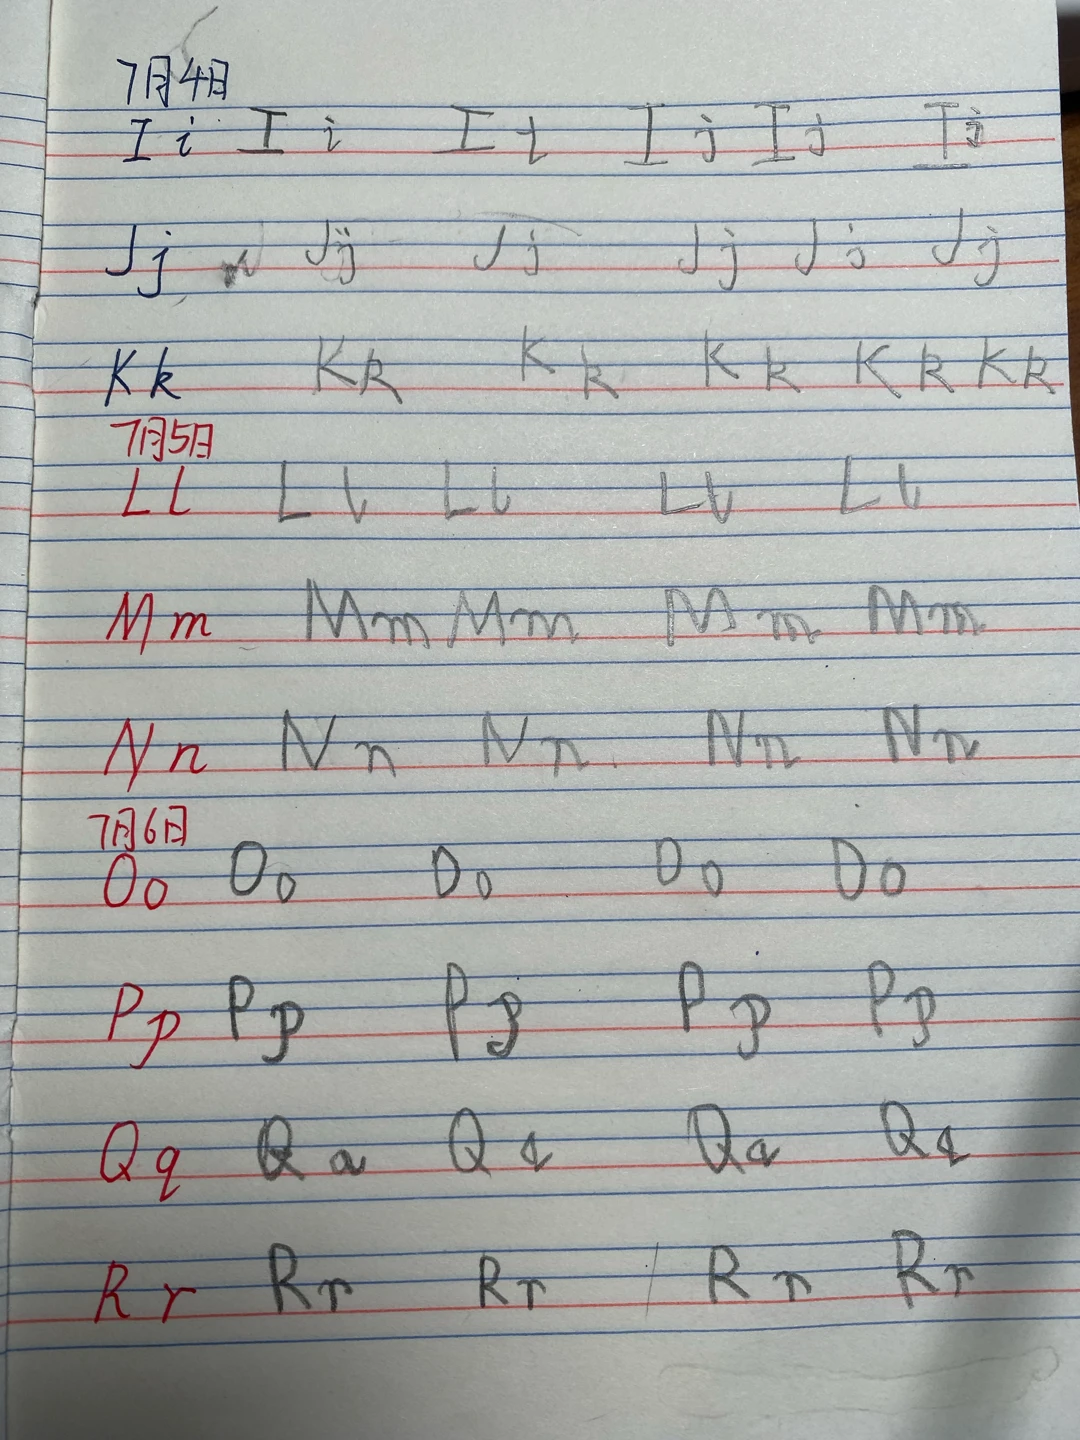 7月4日
I i I i I i I j I j I j
J j J j J j J j J j J j
K k K k K k K k K k K k
7月5日
L l L l L l L l L l
M m M m M m M m M m
N n N n N n N n N n
7月6日
O o O o O o O o O o
P p P p P p P p P p
Q q Q a Q q Q a Q q
R r R r R r R n R r